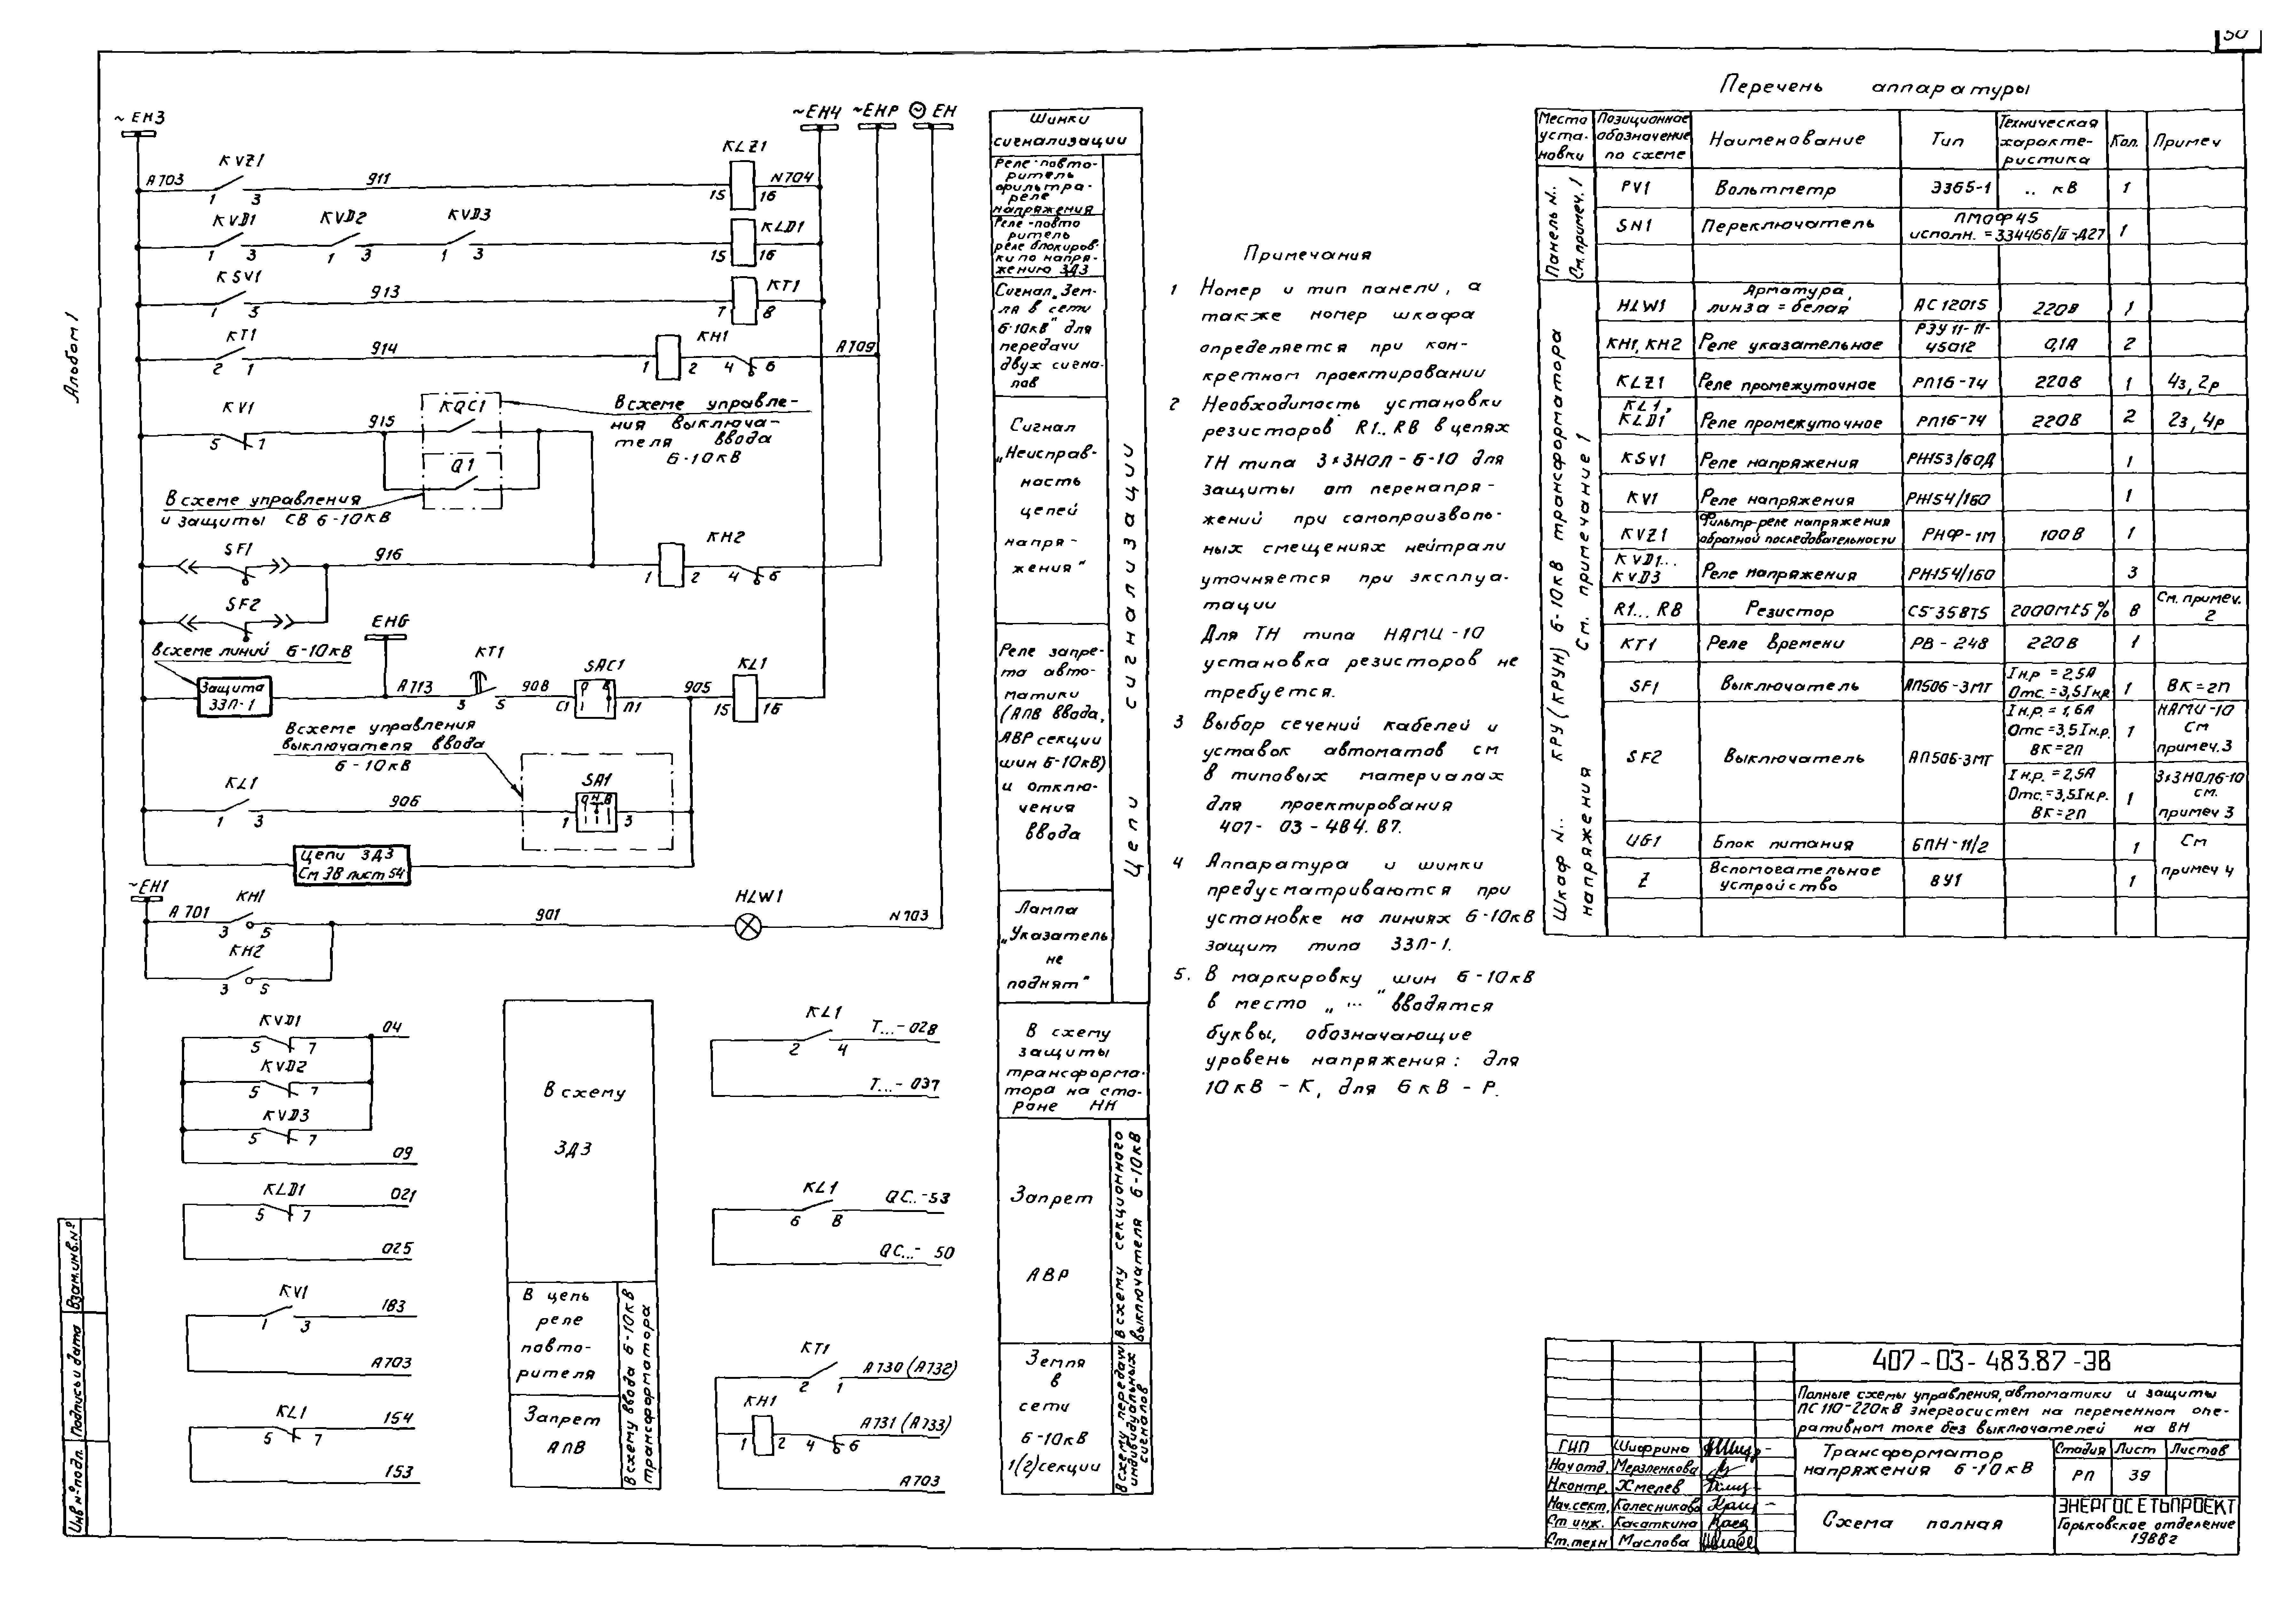 50
Альбом 1
~EH3
~EH4 ~EHP ⊙ EH
A703 KVZ1 911 KLZ1 N704
1 3 15 16
KVD1 KVD2 KVD3 KLD1
1 3 1 3 1 3 15 16
KSV1 913 KT1
1 5 7 8
KT1 914 KH1 A709
2 1 1 2 4 6
KV1 915 KQC1
5 1
В схеме управле-
ния выключа-
теля ввода
6-10кВ
Q1
В схеме управления
и защиты СВ 6-10кВ
SF1 916 KH2
1 2 4 6
SF2
EHG
в схеме линий 6-10кВ
Защита
ЗЗП-1
A713 KT1 908 SAC1 905 KL1
3 5 C1 П1 15 16
В схеме управления
выключателя ввода
6-10кВ
KL1 906 SA1
1 3 1 3
Цепи ЗДЗ
См ЭВ лист 54
~EH1
A701 KH1 901 HLW1 N703
3 5
KH2
3 5
KVD1 04
5 7
KVD2
5 7
KVD3
5 7
09
KLD1 021
5 7
025
KV1 183
1 3
A703
KL1 154
5 7
153
В схему
ЗДЗ
В цепь
реле
повто-
рителя
Запрет
АПВ
В схему ввода 6-10кВ
трансформатора
KL1 T...-028
2 4
T...-037
KL1 QC..-53
6 8
QC...-50
KT1 A730 (A732)
2 1
KH1 A731 (A733)
1 2 4 6
A703
Шинки
сигнализации
Реле-повто-
ритель
фильтра-
реле
напряжения
Реле-повто
ритель
реле блокиров-
ки по напря-
жению ЗДЗ
Сигнал „Зем-
ля в сети
6-10кВ" для
передачи
двух сигна-
лов
Сигнал
„Неисправ-
ность
цепей
напря-
жения"
Реле запре-
та авто-
матики
(АПВ ввода,
АВР секции
шин 6-10кВ)
и отклю-
чения
ввода
Лампа
„Указатель
не
поднят"
Цепи сигнализации
В схему
защиты
трансформа-
тора на сто-
роне НН
Запрет
АВР
В схему секционного
выключателя 6-10кВ
Земля
в
сети
6-10кВ
1(2) секции
В схему передачи
индивидуальных
сигналов
Примечания
1 Номер и тип панели, а
также номер шкафа
определяется при кон-
кретном проектировании
2 Необходимость установки
резисторов R1..R8 в цепях
ТН типа 3×ЗНОЛ-6-10 для
защиты от перенапря-
жений при самопроизволь-
ных смещениях нейтрали
уточняется при эксплуа-
тации
Для ТН типа НАМИ-10
установка резисторов не
требуется.
3 Выбор сечений кабелей и
уставок автоматов см
в типовых материалах
для проектирования
407-03-484.87.
4 Аппаратура и шинки
предусматриваются при
установке на линиях 6-10кВ
защит типа ЗЗП-1.
5. В маркировку шин 6-10кВ
в место „ ... " вводятся
буквы, обозначающие
уровень напряжения: для
10кВ - К, для 6кВ - Р.
Перечень аппаратуры
Место
уста-
новки
Позиционное
обозначение
по схеме
Наименование
Тип
Техническая
характе-
ристика
Кол.
Примеч
Панель N..
См. примеч. 1
PV1 Вольтметр Э365-1 .. кВ 1
SN1 Переключатель ПМОФ45
исполн. = 334466/II-Д27 1
Шкаф N.. КРУ (КРУН) 6-10кВ трансформатора
напряжения См. примечание 1
HLW1 Арматура,
линза = белая АС12015 220В 1
KH1, KH2 Реле указательное РЭУ11-11-
45012 0,1А 2
KLZ1 Реле промежуточное РП16-74 220В 1 4з, 2р
KL1,
KLD1 Реле промежуточное РП16-74 220В 2 2з, 4р
KSV1 Реле напряжения РН153/60Д 1
KV1 Реле напряжения РН154/160 1
KVZ1 Фильтр-реле напряжения
обратной последовательности РНФ-1М 100В 1
KVD1...
KVD3 Реле напряжения РН154/160 3
R1...R8 Резистор С5-35В75 200Ом±5% 8 См. примеч.
2
KT1 Реле времени РВ-248 220В 1
SF1 Выключатель АП50Б-3МТ Iн.р = 2,5А
Отс.=3,5Iн.р 1 ВК=2П
SF2 Выключатель АП50Б-3МТ
Iн.р. = 1,6А
Отс=3,5Iн.р.
ВК=2П 1 НАМИ-10
См
примеч.3
Iн.р. = 2,5А
Отс.=3,5Iн.р.
ВК=2П 1 3×ЗНОЛ6-10
см.
примеч 3
UG1 Блок питания БПН-11/2 1 См
примеч 4
Z Вспомогательное
устройство ВУ1 1
407-03-483.87-ЭВ
Полные схемы управления, автоматики и защиты
ПС 110-220кВ энергосистем на переменном опе-
ративном токе без выключателей на ВН
Трансформатор
напряжения 6-10кВ
Стадия Лист Листов
РП 39
Схема полная
ЭНЕРГОСЕТЬПРОЕКТ
Горьковское отделение
1988г
ГИП Шифрина
Нач отд. Мерзленкова
Н контр. Хмелев
Нач.сект. Колесникова
Ст инж. Касаткина
Ст.техн Маслова
Инв № подл. Подпись и дата Взам.инв.№